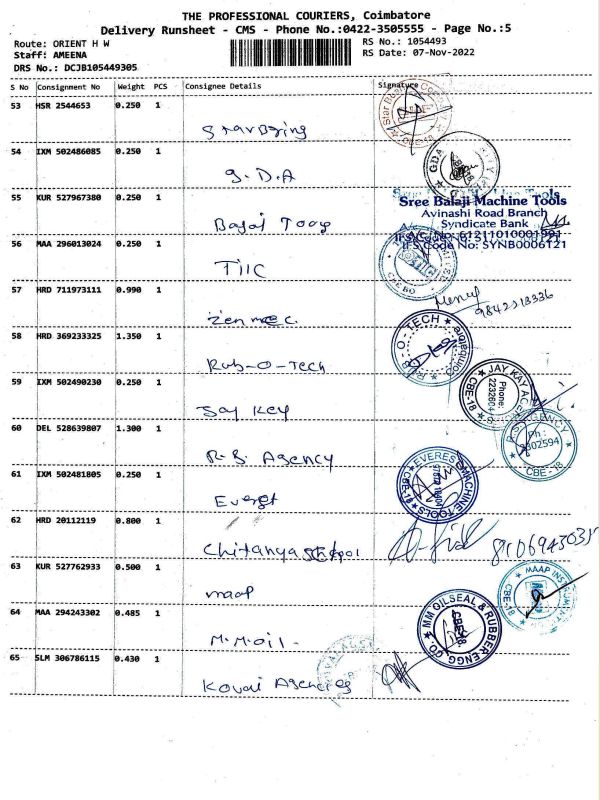 THE PROFESSIONAL COURIERS, Coimbatore
Delivery Runsheet - CMS - Phone No.:0422-3505555 - Page No.:5
Route: ORIENT H W
RS No.: 1054493
Staff: AMEENA
RS Date: 07-Nov-2022
DRS No.: DCJB105449305
S No Consignment No Weight PCS Consignee Details Signature
53 HSR 2544653 0.250 1
Star Boring
54 IXM 502486085 0.250 1
G.D.A
55 KUR 527967380 0.250 1
Sree Balaji Machine Tools
Avinashi Road Branch
Syndicate Bank
Balaji Tools
A/C. No: 61211010001991
IFS Code No: SYNB0006121
56 MAA 296013024 0.250 1
TIIC
57 HRD 711973111 0.990 1
9842318336
Zenmec.
58 HRD 369233325 1.350 1
R-B-O-TECH
Rub-O-Tech
59 IXM 502490230 0.250 1
JAY KAY
Phone: 2232604
CBE-18
Jay Key
60 DEL 528639807 1.300 1
Ph: 2302594
CBE-18
R.S. Agency
61 IXM 502481805 0.250 1
EVEREST MACHINE TOOLS
CBE-18
Everest
62 HRD 20112119 0.800 1
Chitanya School
63 KUR 527762933 0.500 1
MAAP INSTRUMENT
CBE-18
maap
64 MAA 294243302 0.485 1
MM OILSEAL & RUBBER ENGG CO.
CBE-18.
M.M.oil.
65 SLM 306786115 0.430 1
Kovai Agencies